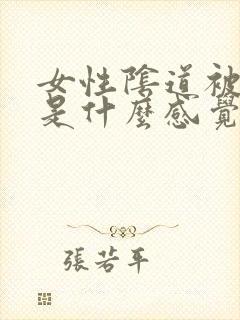 女性陰道被
是什麼感覺
張若平